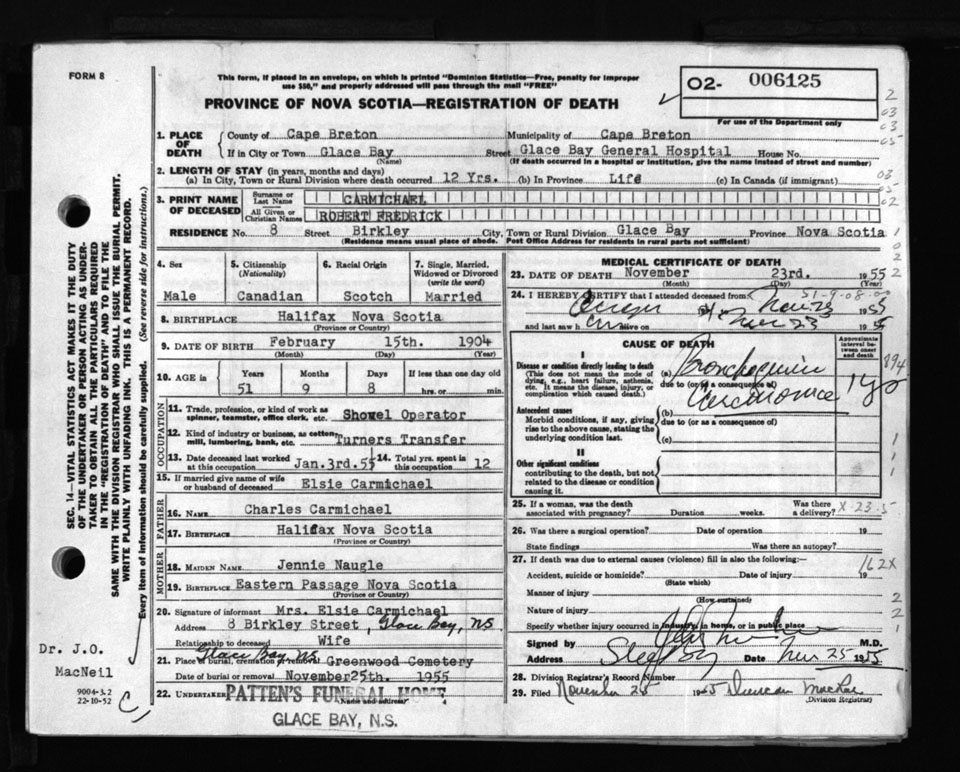 FORM 8
This form, if placed in an envelope, on which is printed "Dominion Statistics—Free, penalty for improper
use $50," and properly addressed will pass through the mail "FREE"
PROVINCE OF NOVA SCOTIA—REGISTRATION OF DEATH
O2- 006125
For use of the Department only
1. PLACE OF DEATH
County of Cape Breton Municipality of Cape Breton
If in City or Town Glace Bay Street Glace Bay General Hospital House No.
(Name) (If death occurred in a hospital or institution, give the name instead of street and number)
2. LENGTH OF STAY (in years, months and days)
(a) In City, Town or Rural Division where death occurred 12 Yrs. (b) In Province Life (c) In Canada (if immigrant)
3. PRINT NAME OF DECEASED
Surname or Last Name CARMICHAEL
All Given or Christian Names ROBERT FREDRICK
RESIDENCE No. 8 Street Birkley City, Town or Rural Division Glace Bay Province Nova Scotia
(Residence means usual place of abode. Post Office Address for residents in rural parts not sufficient)
4. Sex
Male
5. Citizenship
(Nationality)
Canadian
6. Racial Origin
Scotch
7. Single, Married, Widowed or Divorced
(write the word)
Married
8. BIRTHPLACE Halifax Nova Scotia
(Province or Country)
9. DATE OF BIRTH February 15th. 1904
(Month) (Day) (Year)
10. AGE in Years Months Days If less than one day old
51 9 8 hrs. or min.
OCCUPATION
11. Trade, profession, or kind of work as
spinner, teamster, office clerk, etc. Showel Operator
12. Kind of industry or business, as cotton
mill, lumbering, bank, etc. Turners Transfer
13. Date deceased last worked
at this occupation Jan.3rd.55
14. Total yrs. spent in
this occupation 12
15. If married give name of wife
or husband of deceased Elsie Carmichael
FATHER
16. NAME Charles Carmichael
17. BIRTHPLACE Halifax Nova Scotia
(Province or Country)
MOTHER
18. MAIDEN NAME Jennie Naugle
19. BIRTHPLACE Eastern Passage Nova Scotia
(Province or Country)
20. Signature of informant Mrs. Elsie Carmichael
Address 8 Birkley Street, Glace Bay, NS
Relationship to deceased Wife
Glace Bay NS
21. Place of burial, cremation or removal Greenwood Cemetery
Date of burial or removal November 25th. 1955
22. UNDERTAKER PATTEN'S FUNERAL HOME
(Name and address)
GLACE BAY, N.S.
MEDICAL CERTIFICATE OF DEATH
23. DATE OF DEATH November 23rd. 1955
(Month) (Day)
24. I HEREBY CERTIFY that I attended deceased from
Nov 23 1955
and last saw h alive on Nov 23 1955
CAUSE OF DEATH
Approximate interval between onset and death
I
Disease or condition directly leading to death
(This does not mean the mode of
dying, e.g., heart failure, asthenia,
etc. It means the disease, injury, or
complication which caused death.)
(a) Bronchogenic
due to (or as a consequence of)
Carcinoma 1 yr
Antecedent causes
Morbid conditions, if any, giving
rise to the above cause, stating the
underlying condition last.
(b)
due to (or as a consequence of)
(c)
II
Other significant conditions
contributing to the death, but not
related to the disease or condition
causing it.
25. If a woman, was the death
associated with pregnancy? Duration weeks. Was there a delivery?
26. Was there a surgical operation? Date of operation 19
State findings Was there an autopsy?
27. If death was due to external causes (violence) fill in also the following:—
Accident, suicide or homicide? Date of injury 19
(State which)
Manner of injury
(How sustained)
Nature of injury
Specify whether injury occurred in industry, in home, or in public place
162X
Signed by M.D.
Address Date Nov 25 1955
28. Division Registrar's Record Number
29. Filed November 25 1955 Duncan MacRae
(Division Registrar)
SEC. 14—VITAL STATISTICS ACT MAKES IT THE DUTY
OF THE UNDERTAKER OR PERSON ACTING AS UNDER-
TAKER TO OBTAIN ALL THE PARTICULARS REQUIRED
IN THE "REGISTRATION OF DEATH" AND TO FILE THE
SAME WITH THE DIVISION REGISTRAR WHO SHALL ISSUE THE BURIAL PERMIT.
WRITE PLAINLY WITH UNFADING INK. THIS IS A PERMANENT RECORD.
Every item of information should be carefully supplied. (See reverse side for instructions.)
Dr. J.O.
MacNeil
9004-3.2
22-10-52